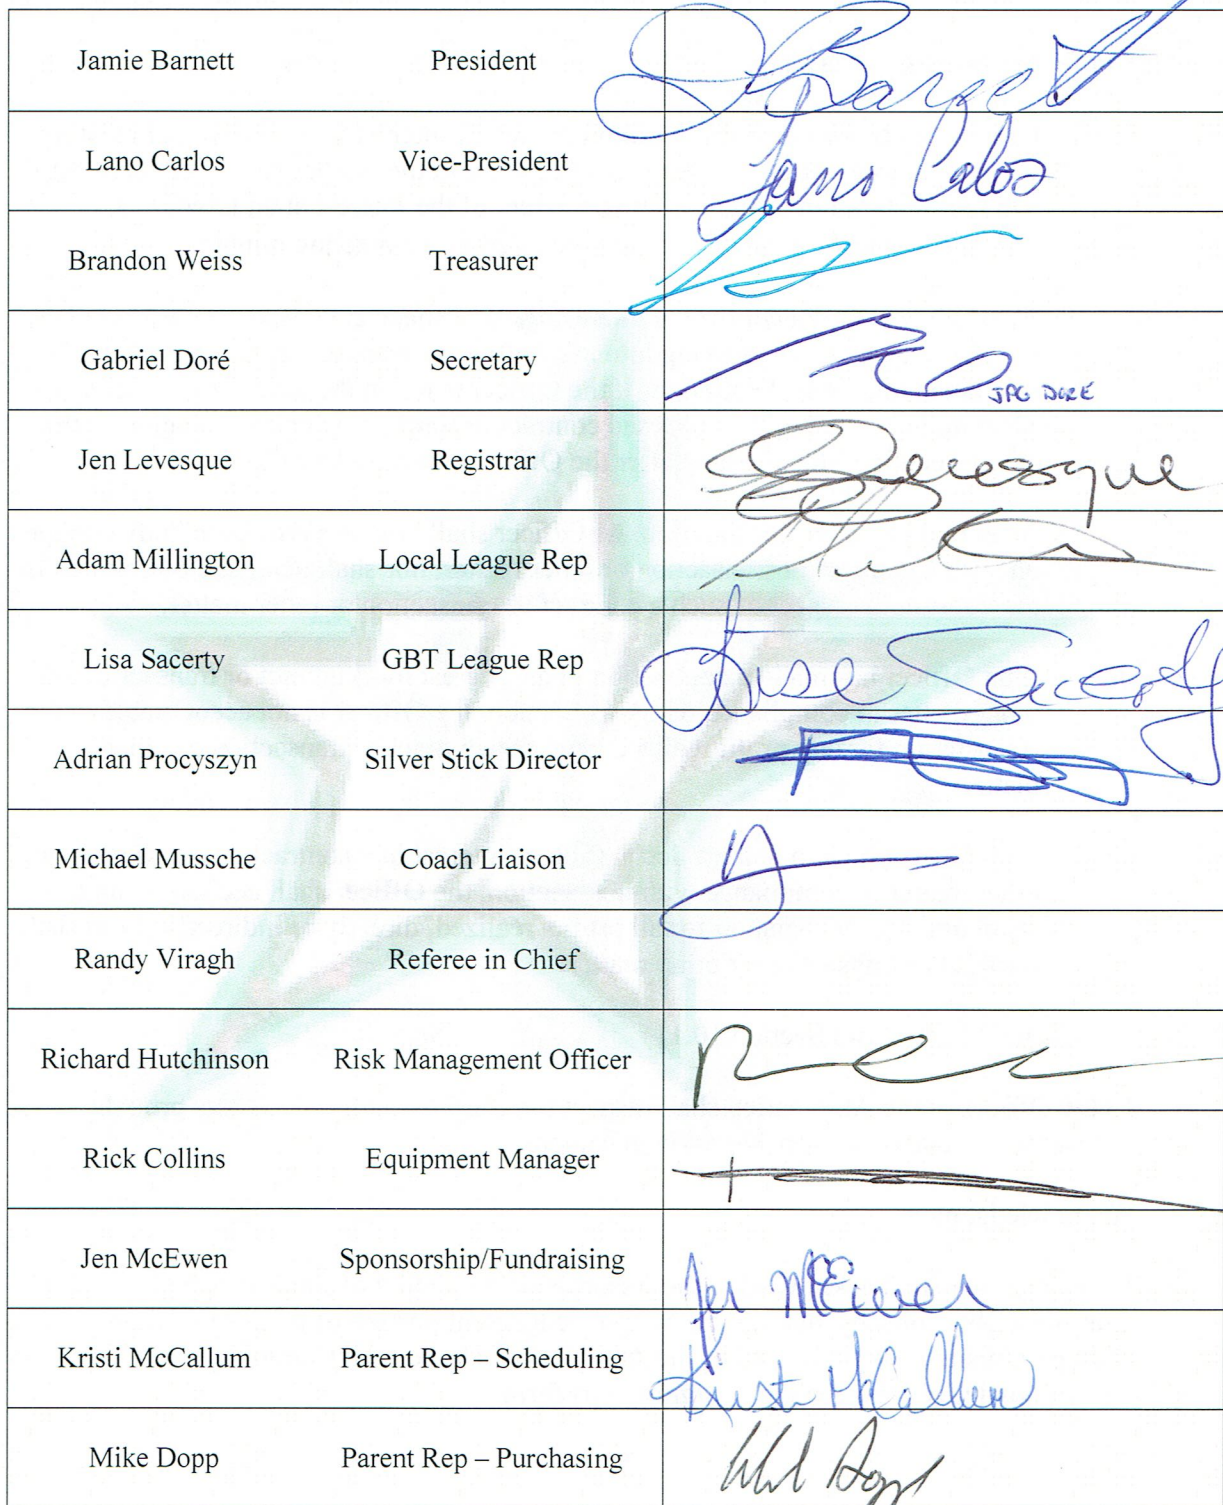 Jamie Barnett President J Barnett
Lano Carlos Vice-President Lano Calos
Brandon Weiss Treasurer
Gabriel Doré Secretary JPG DORÉ
Jen Levesque Registrar Levesque
Adam Millington Local League Rep
Lisa Sacerty GBT League Rep Lisa Sacerty
Adrian Procyszyn Silver Stick Director
Michael Mussche Coach Liaison
Randy Viragh Referee in Chief
Richard Hutchinson Risk Management Officer
Rick Collins Equipment Manager
Jen McEwen Sponsorship/Fundraising Jen McEwen
Kristi McCallum Parent Rep – Scheduling Kristi McCallum
Mike Dopp Parent Rep – Purchasing